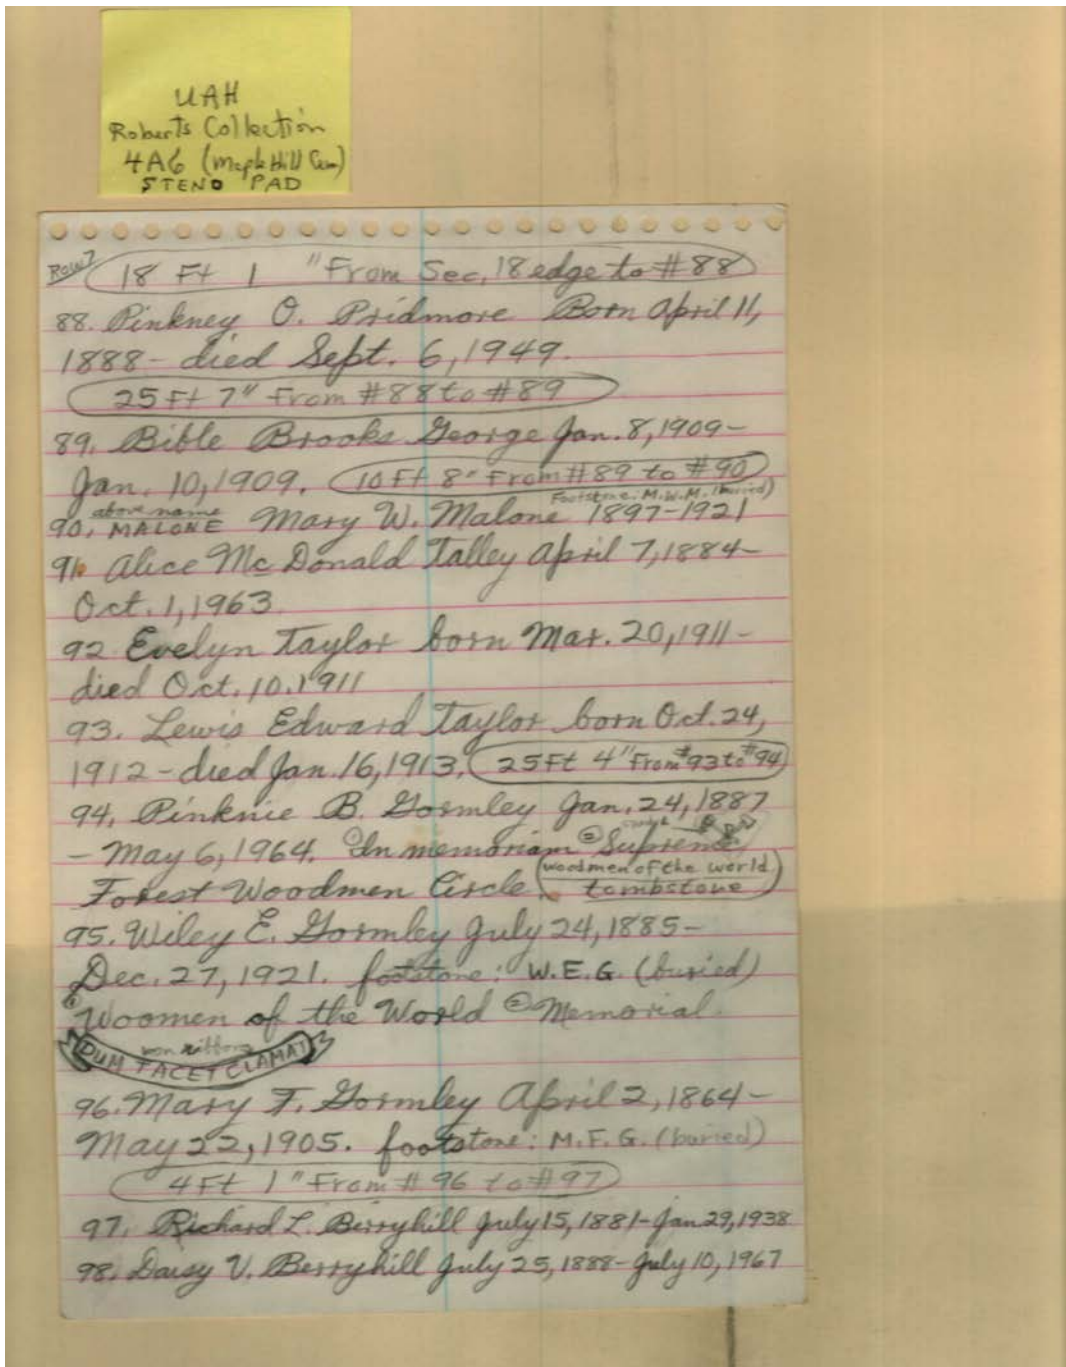 UAH
Roberts Collection
4A6 (Maple Hill Cem)
STENO PAD
Row 7
18 Ft 1 " From Sec. 18 edge to #88
88. Pinkney O. Pridmore Born April 11,
1888 - died Sept. 6, 1949.
25 Ft 7" From #88 to #89
89. Bible Brooks George Jan. 8, 1909 -
Jan. 10, 1909. 10 Ft 8" From #89 to #90
Footstone: M.W.M. (buried)
above name
90. MALONE Mary W. Malone 1897-1921
91. Alice McDonald Talley April 7, 1884 -
Oct. 1, 1963
92 Evelyn Taylor born Mar. 20, 1911 -
died Oct. 10. 1911
93. Lewis Edward Taylor born Oct. 24,
1912 - died Jan. 16, 1913. 25 Ft 4" From #93 to #94
94. Pinknie B. Gormley Jan. 24, 1887
- May 6, 1964. ① In memoriam ② Supreme
Forest Woodmen Circle (woodmen of the world
tombstone)
95. Wiley E. Gormley July 24, 1885 -
Dec. 27, 1921. footstone: W.E.G. (buried)
① Woomen of the World ② Memorial.
DUM TACET CLAMAT
96. Mary F. Gormley April 2, 1864 -
May 22, 1905. footstone: M.F.G. (buried)
4 Ft 1" From #96 to #97
97. Richard L. Berryhill July 15, 1881 - Jan 29, 1938
98. Daisy V. Berryhill July 25, 1888 - July 10, 1967